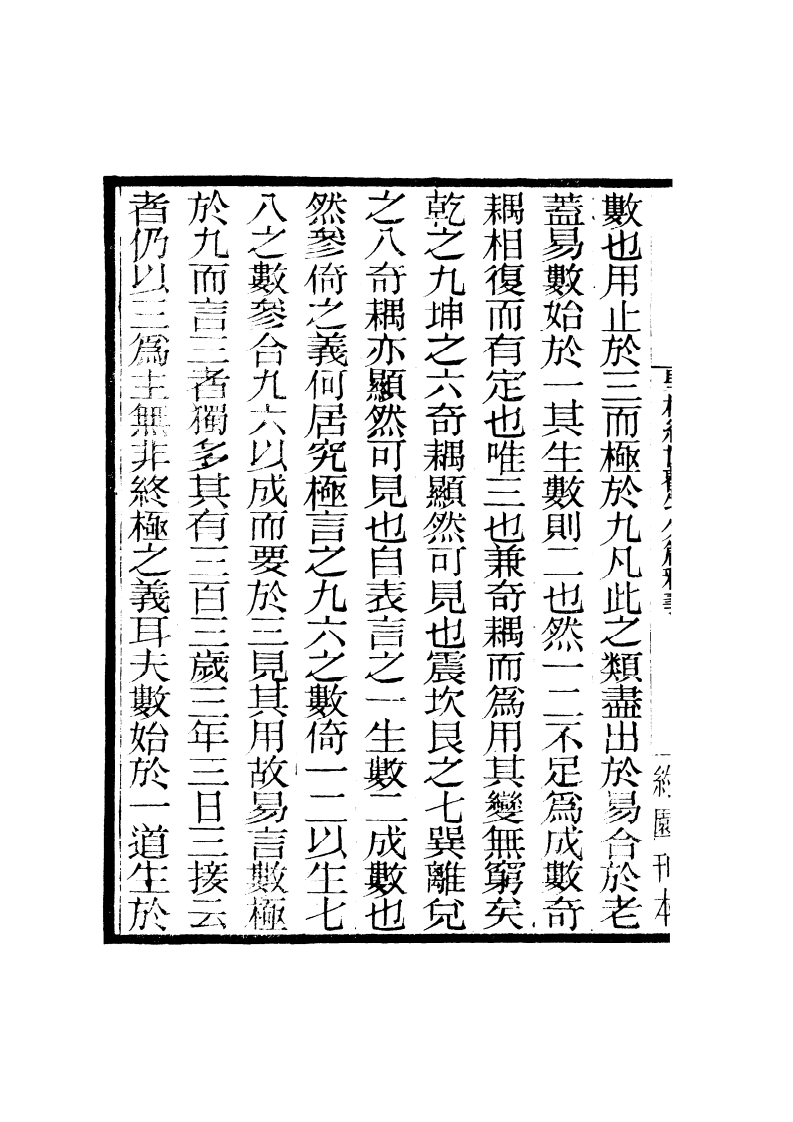 數也用止於三而極於九凡此之類盡出於易合於老
蓋易數始於一其生數則二也然一二不足爲成數奇
耦相復而有定也唯三也兼奇耦而爲用其變無窮矣
乾之九坤之六奇耦顯然可見也震坎艮之七巽離兌
之八奇耦亦顯然可見也自表言之一生數二成數也
然參倚之義何居究極言之九六之數倚一二以生七
八之數參合九六以成而要於三見其用故易言數極
於九而言三者獨多其有三百三歲三年三日三接云
者仍以三爲主無非終極之義耳夫數始於一道生於
約園刊本